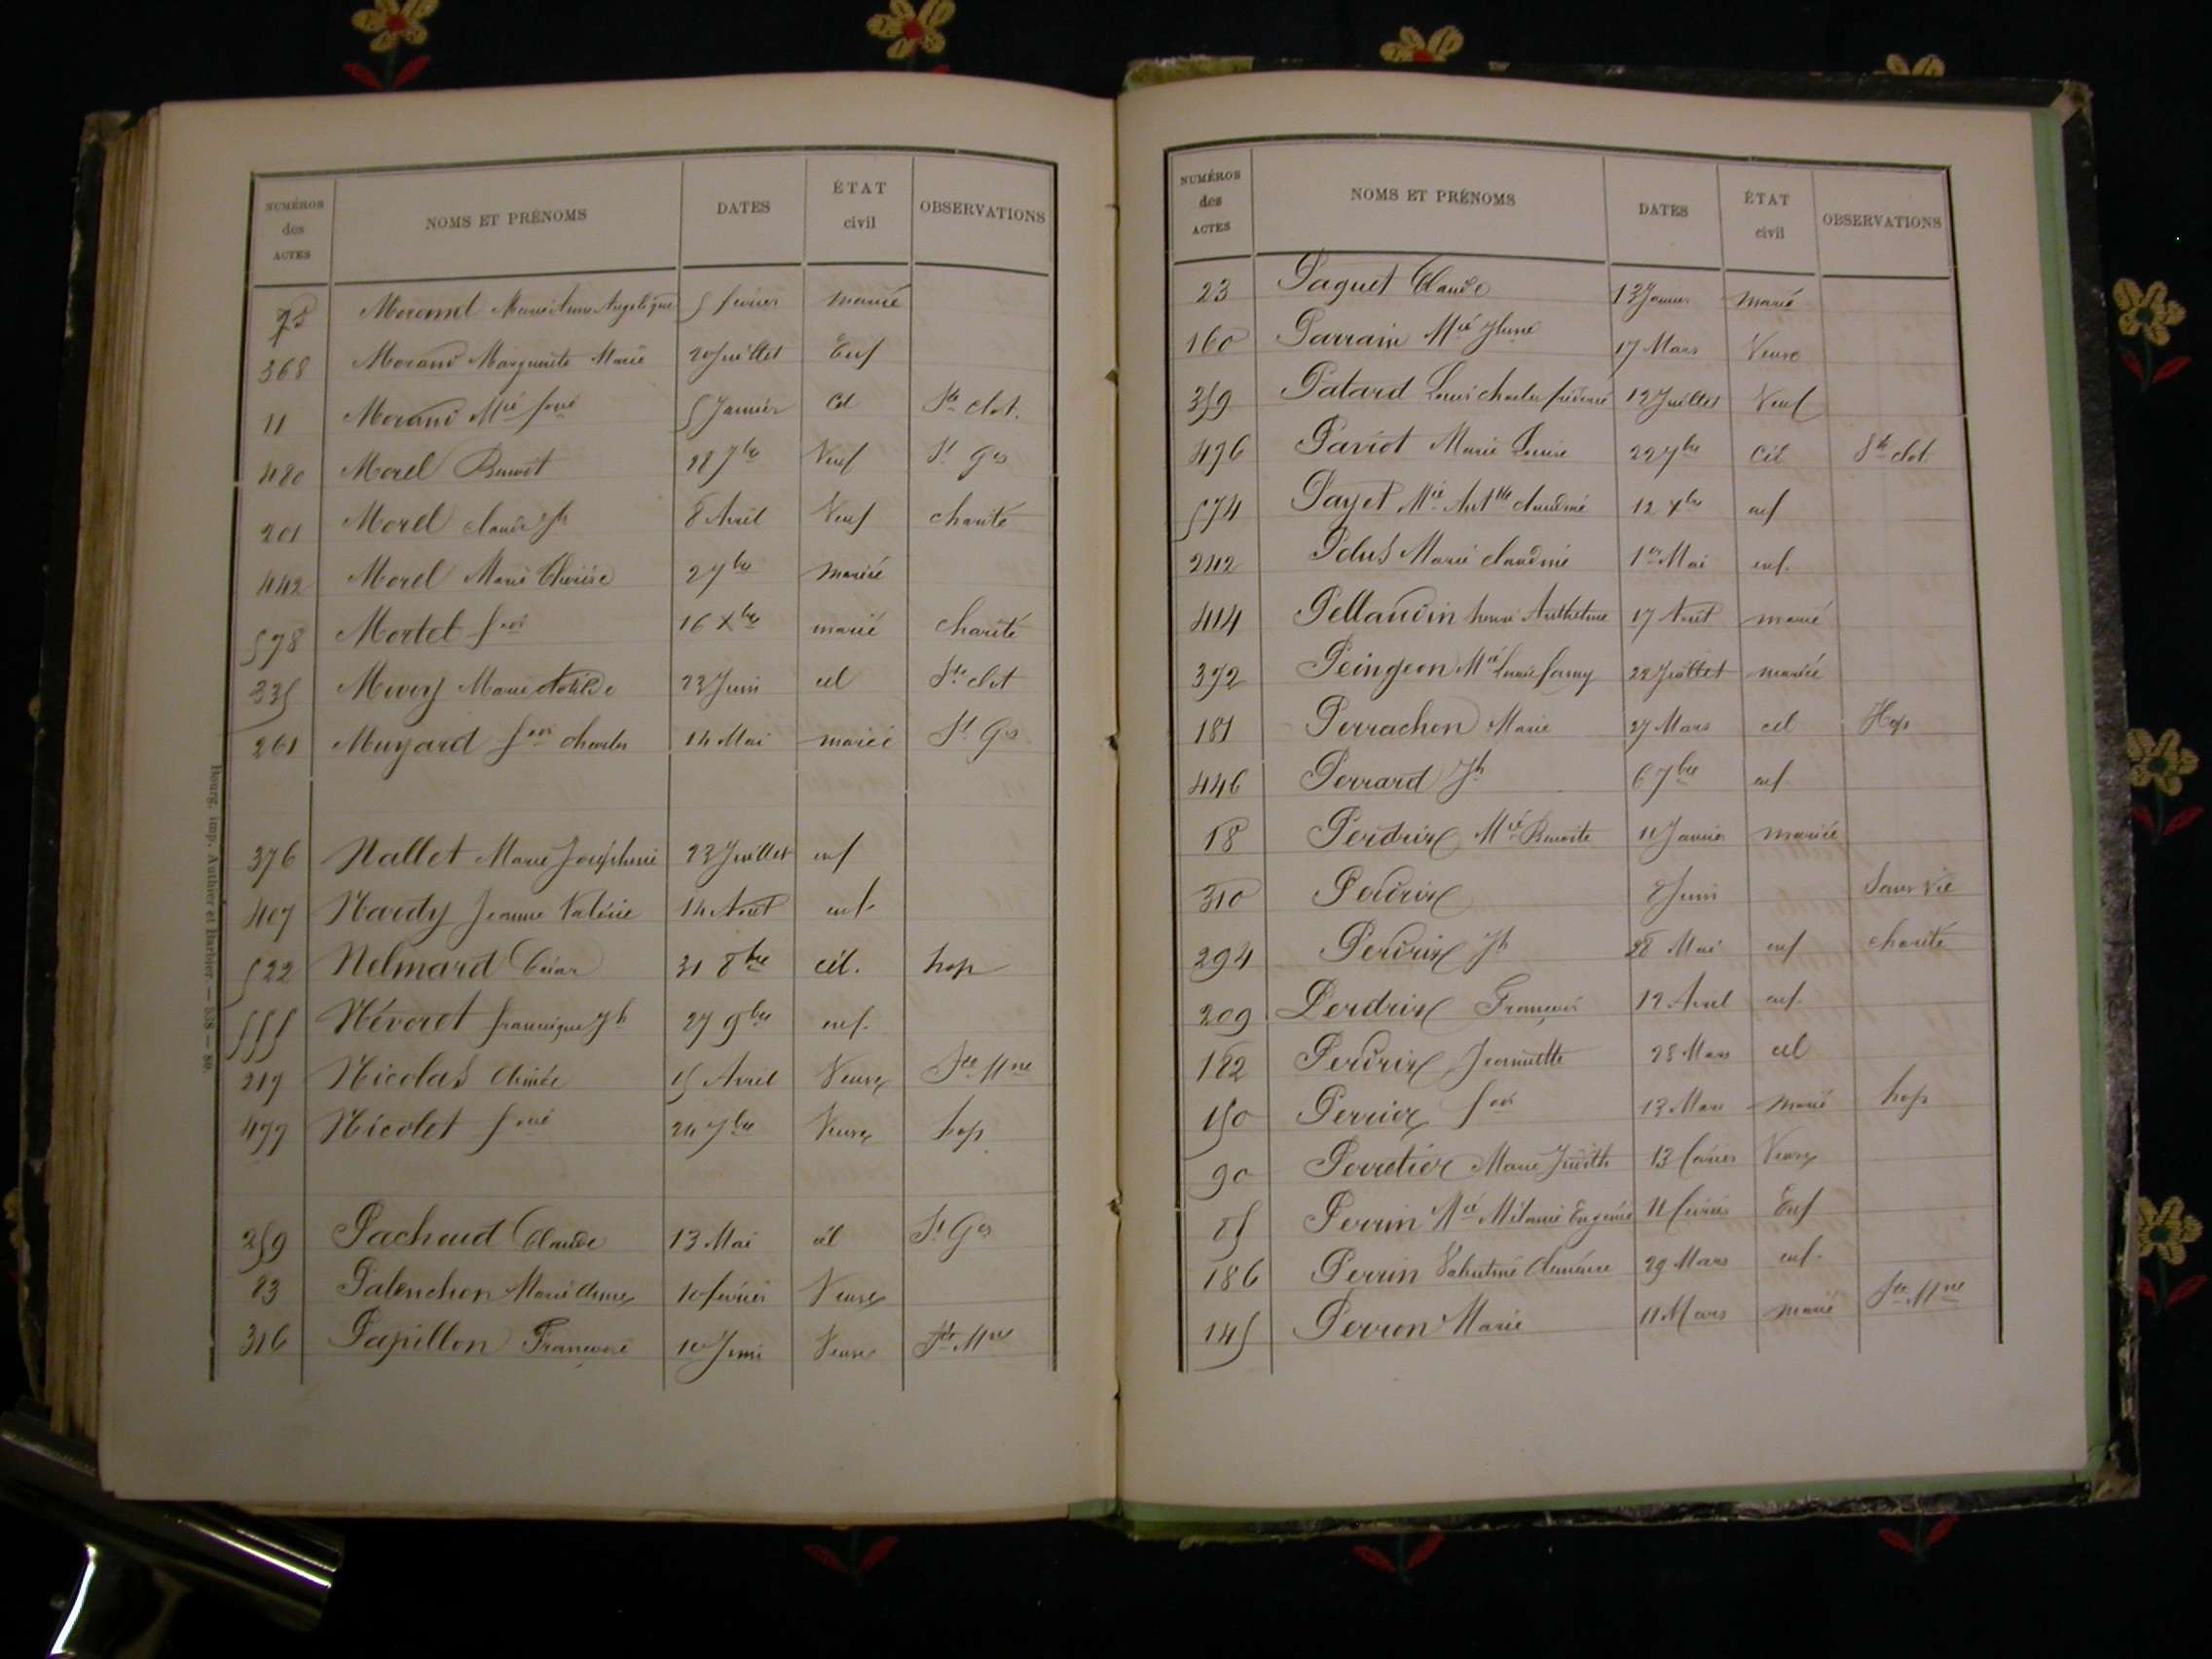 NUMÉROS des ACTES NOMS ET PRÉNOMS DATES ÉTAT civil OBSERVATIONS
75 Marie Anne Angélique 5 février mariée
368 Morand Marguerite Marie 20 Juillet Enf
11 Morand Mie fçoise 5 Janvier Cel Ste Clot.
480 Morel Benoit 7bre Veuf St Ges
201 Morel Claude Jh 8 Avril Veuf charité
442 Morel Marie Thérèse 2 7bre mariée
578 Mortel fçois 16 Xbre marié charité
335 Marie Clotilde 23 Juin cel Ste Clot
261 Muyard fçois charles 14 Mai marié St Ges
376 Nallet Marie Joséphine 23 Juillet enf
407 Nardy Jeanne Valérie 14 Août enf.
522 Nelmard César 31 8bre cél. hop
555 Névoret Jh 27 9bre enf.
219 Nicolas Aimée 15 Avril Veuve Ste Mne
499 Nicolet fçoise 24 7bre Veuve hop
259 Pachoud Claude 13 Mai cél St Ges
83 Palenchon Marie 10 février Veuve
316 Papillon Françoise 10 Juin Veuve Ste Mne
Bourg, imp. Authier et Barbier. — 558 — 80.
NUMÉROS des ACTES NOMS ET PRÉNOMS DATES ÉTAT civil OBSERVATIONS
23 Paguet Claude 13 Janvier marié
160 Parrain Mie 17 Mars Veuve
359 Patard Louis charles frédéric 12 Juillet Veuf
496 Paviot Marie Louise 22 7bre Cél Ste Clot.
574 Payet Mie Antte Claudine 12 Xbre enf
242 Pelus Marie Claudine 1er Mai enf.
414 Pellaudin henri Anthelme 17 Août marié
392 Peingeon Mie Louise fanny 22 Juillet mariée
181 Perrachon Marie 27 Mars cel Hop
446 Perrard Jh 6 7bre enf.
18 Perdrix Mie Benoite 11 Janvier mariée
310 Perdrix 8 Juin Sans Vie
294 Perdrix Jh 28 Mai enf charité
209 Perdrix François 12 Avril enf.
182 Perdrix Jeannette 28 Mars cel
150 Perrier fçois 13 Mars marié hop
90 Perretier Marie Judith 13 février Veuve
85 Perrin Mie Mélanie Eugénie 11 février Enf
186 Perrin Valentine Clémence 29 Mars enf.
145 Perron Marie 11 Mars mariée Ste Mne